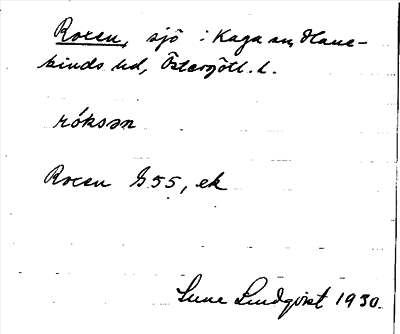 Roxen, sjö i Kaga sn, Hane-
kinds hd, Östergötl. l.
róksən
Roxen G55, ek
Sune Lindqvist 1930.